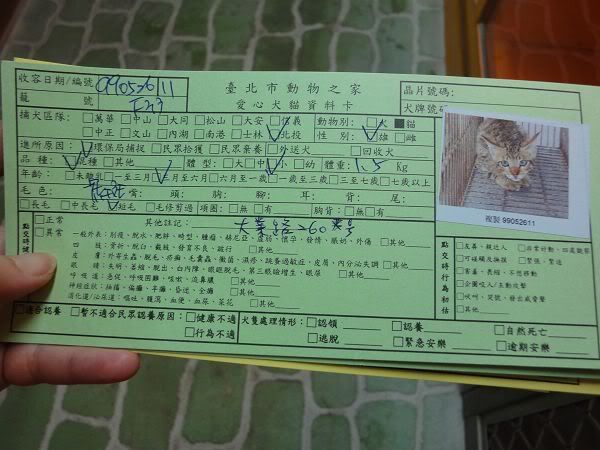 收容日期/編號 0990526 11
籠 號 F23
臺北市動物之家
愛心犬貓資料卡
晶片號碼:
犬牌號碼
捕犬區隊: □萬華 □中山 □大同 □松山 □大安 □信義 動物別: □犬 ■貓
□中正 □文山 □內湖 □南港 □士林 □北投 性 別: □雄 □雌
進所原因: □環保局捕捉 □民眾拾獲 □民眾棄養 □外送犬 □回收犬
品 種: □混種 □其他 體 型: □大 □中 □小 □幼 體重: 1.5 Kg
年齡: □未離乳 □一至三月 □三月至六月 □六月至一歲 □一歲至三歲 □三至七歲 □七歲以上
毛 色: 嘴: 頭: 胸: 腳: 耳: 背: 尾:
□長毛 □中長毛 □短毛 □毛修剪過 項圈: □無 □有 胸背: □無 □有
複製 99052611
點交時健
□正常
□異常
其他註記: 大業路260
一般外表: 削瘦、脫水、肥胖、畸型、腫瘤、
四 肢: 骨折、脫臼、截肢、發育不良、跛行 □其他
皮 膚: 外寄生蟲、脫毛、疥癬、毛囊蟲、黴菌、濕疹、跳蚤過敏症、皮膚、內分泌失調 □其他
眼 睛: 失明、萎縮、脫出、白內障、眼瞼脫毛、第三眼瞼增生、眼屎 □其他
呼 吸 道: 急促、呼吸困難、咳嗽、流鼻膿 □其他
神經症狀: 抽搐、偏癱、半癱、昏迷、全癱 □其他
消化道/泌尿道: 嘔吐、腹瀉、血便、血尿、菜花 □其他
點交時行為初估
□友善、親近人
□可碰觸及撫摸 □緊張、緊迫
□害羞、畏縮、不想移動
□企圖咬人/主動攻擊
□吠叫、哭號、發出威脅聲
□其他
□適合認養 □暫不適合民眾認養原因: □健康不適
□行為不適
犬隻處理情形: □認領 □認養 □自然死亡
□逃脫 □緊急安樂 □逾期安樂